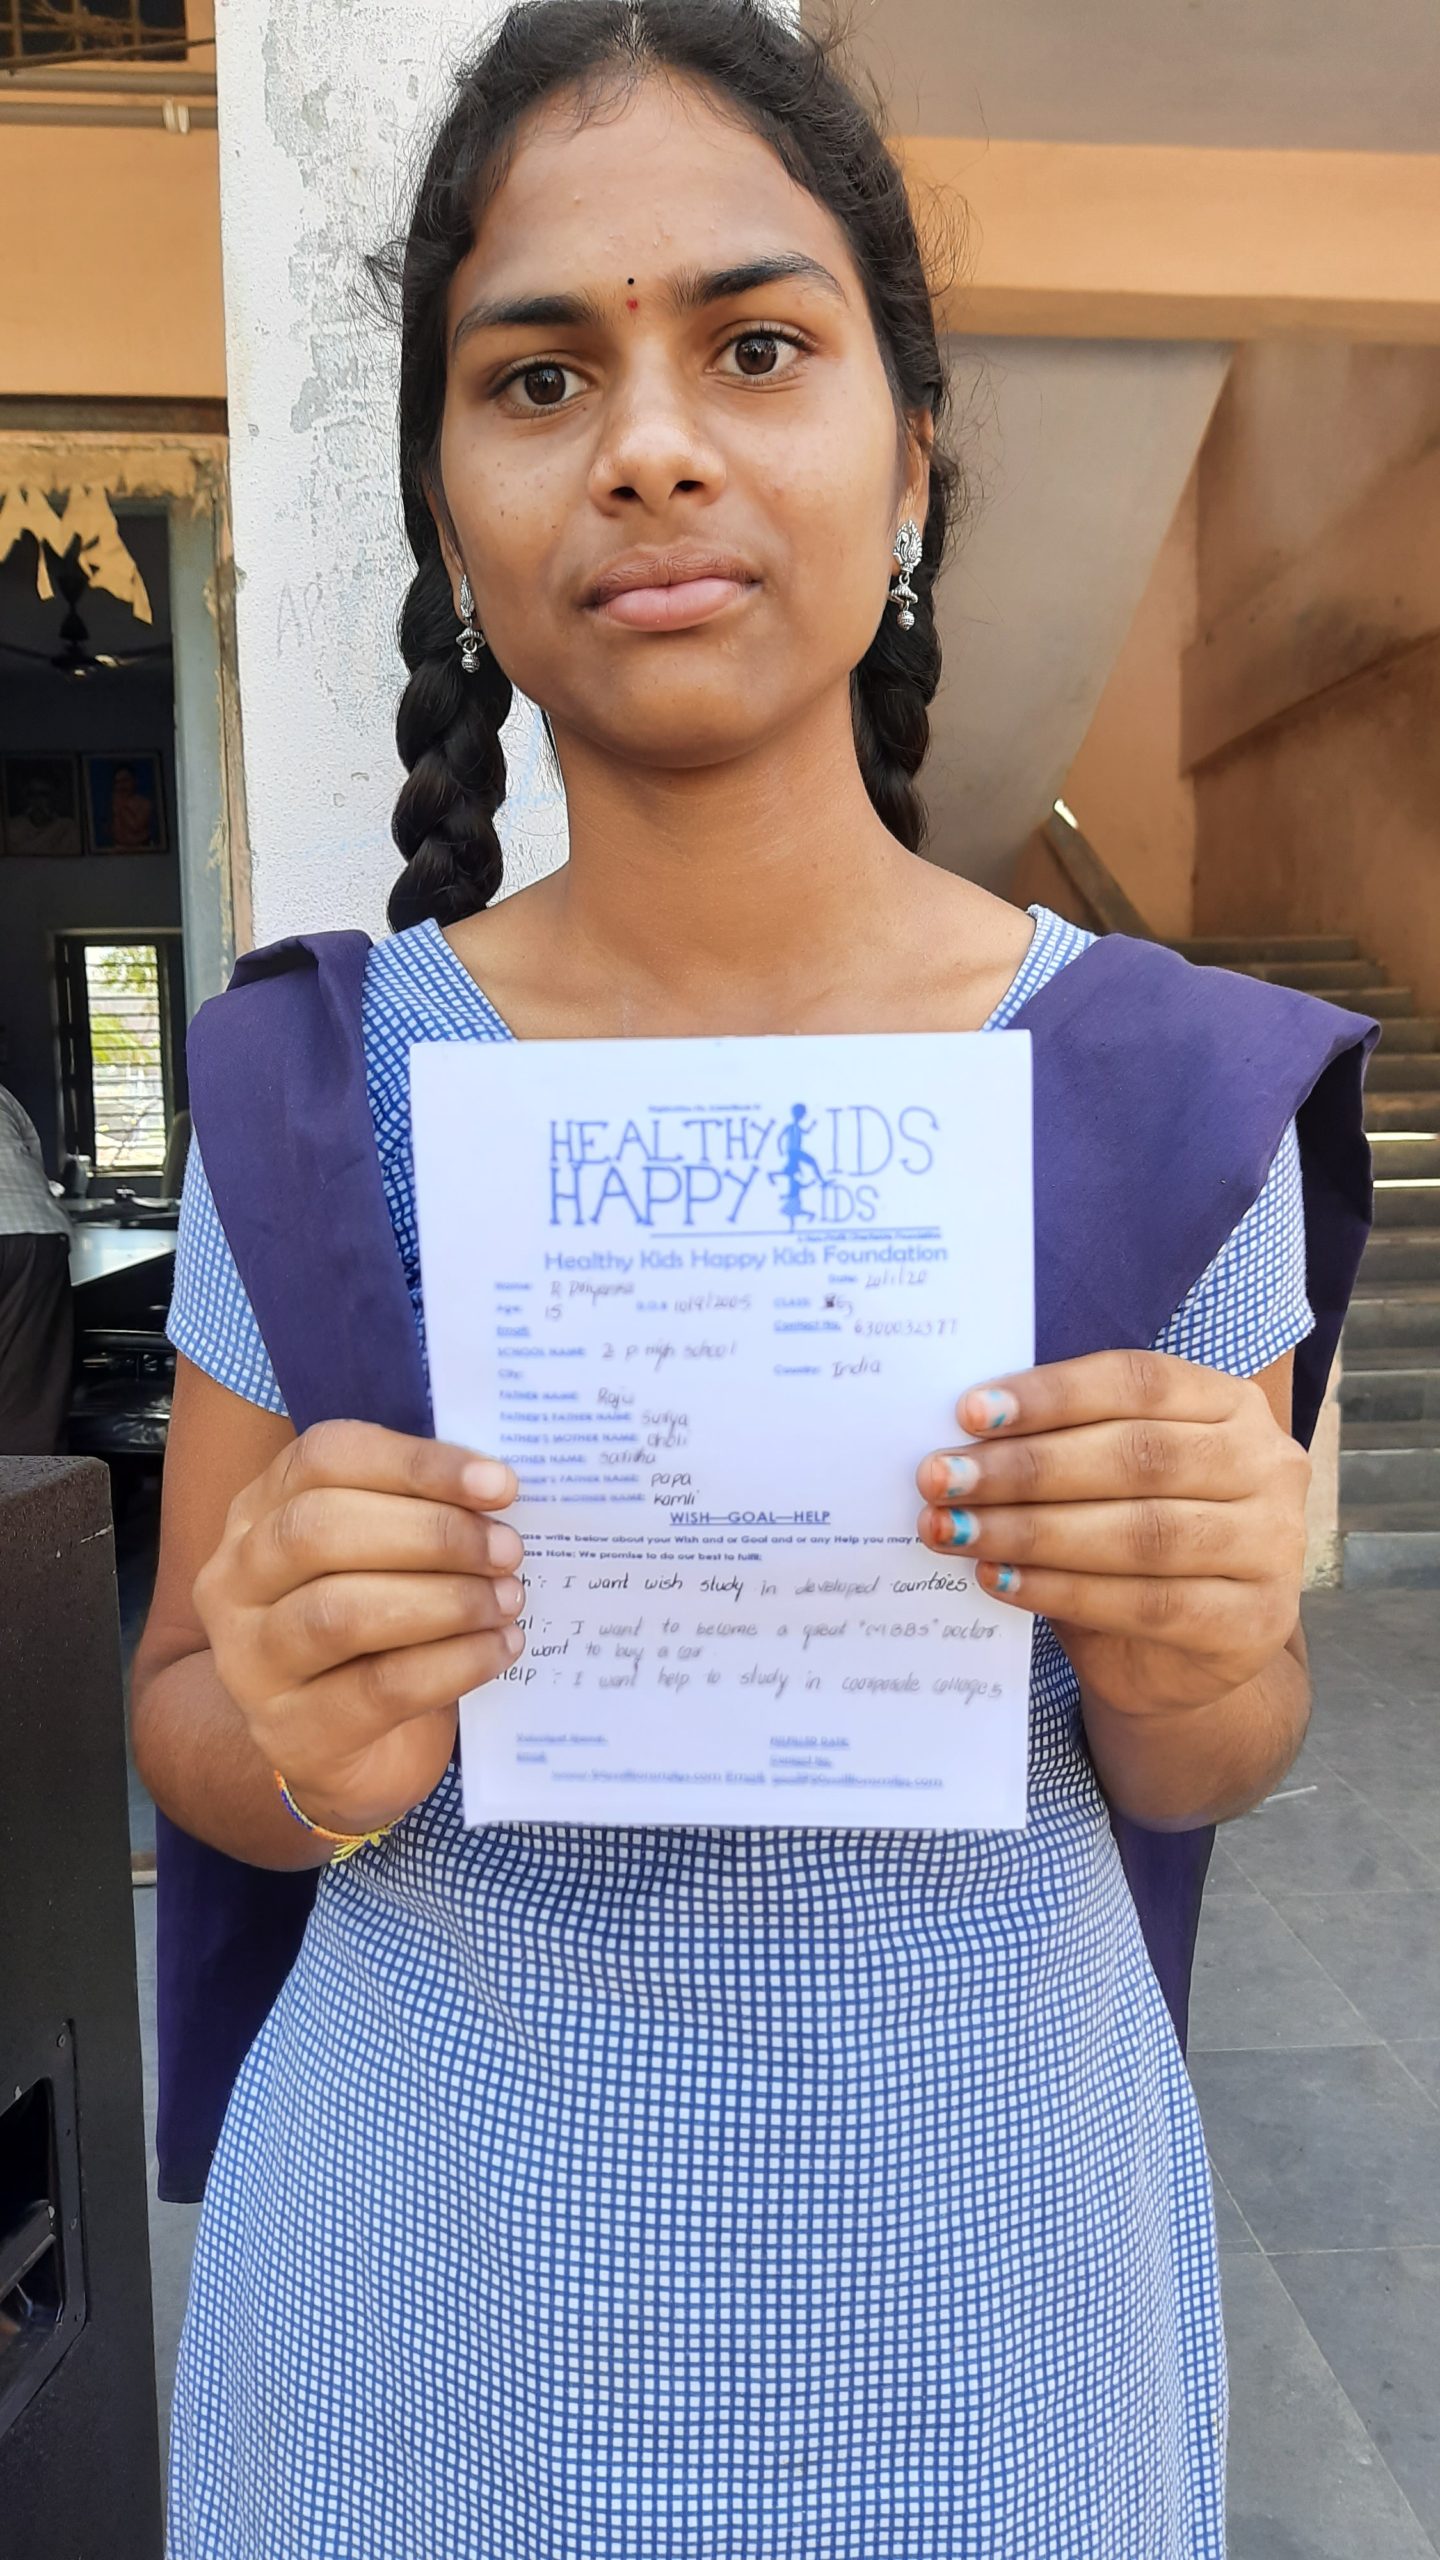 HEALTHY KIDS
HAPPY KIDS
Healthy Kids Happy Kids Foundation
Name: R Priyanka Date: 20/1/20
Age: 15 D.O.B 10/9/2005 CLASS
Email: Contact No. 6300032387
SCHOOL NAME: Z P High School
City: Country: India
FATHER NAME: Raju
FATHER'S FATHER NAME: Surya
FATHER'S MOTHER NAME: Dholi
MOTHER NAME: Saritha
FATHER NAME: Papa
MOTHER NAME: Kamli
WISH—GOAL—HELP
write below about your Wish and or Goal and or any Help you may
Note: We promise to do our best to fulfill:
h :- I want wish study in developed countries.
al :- I want to become a great "MBBS" Doctor.
want to buy a car.
Help :- I want help to study in corporate colleges
FULFILLED DATE:
Email: Contact No.
Email: